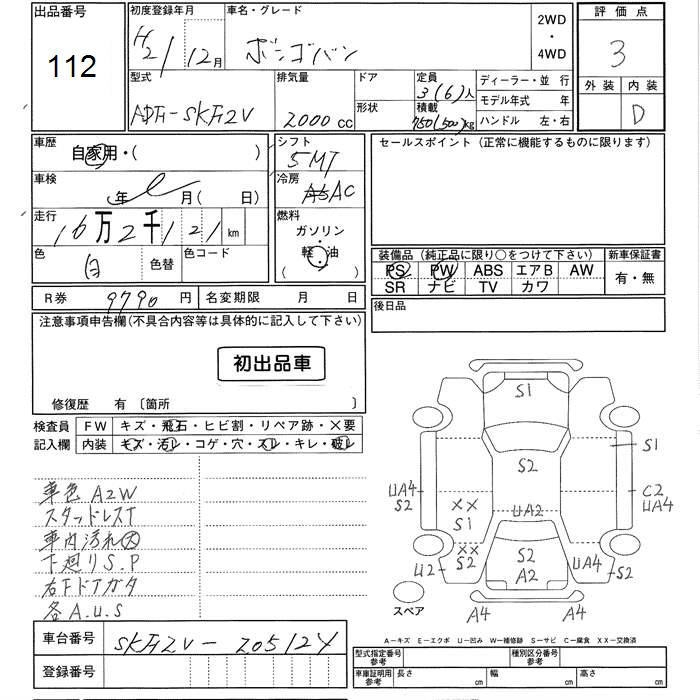 出品番号
112
初度登録年月
H21/12月
車名・グレード
ボンゴバン
2WD
・
4WD
評価点
3
外装 内装
D
型式
ADF-SKF2V
排気量
2000cc
ドア
形状
定員
3(6)人
積載
750(500)kg
ディーラー・並 行
モデル年式 年
ハンドル 左・右
車歴
自家用・( )
シフト
5MT
車検
年 月( 日)
冷房
AC
走行
16万2千121km
燃料
ガソリン
・
軽 油
( )
色
白
色替
色コード
セールスポイント(正常に機能するものに限ります)
装備品(純正品に限り○をつけて下さい)
PS PW ABS エアB AW
SR ナビ TV カワ
新車保証書
有・無
R券 9790円
名変期限 月 日
後日品
注意事項申告欄(不具合内容等は具体的に記入して下さい)
初出品車
修復歴 有〔箇所 〕
検査員
記入欄
FW キズ・飛石・ヒビ割・リペア跡・×要
内装 キズ・汚レ・コゲ・穴・スレ・キレ・破レ
車色A2W
スタッドレスT
車内汚れ大
下廻りS.P
右Fドアガタ
各A.U.S
S1
S1
S2
UA4
S2
C2
UA4
XX
S1
UA2
XX
S2
U2
S2
A2
UA4
S2
スペア
A4
A4
A-キズ E-エクボ U-凹み W-補修跡 S-サビ C-腐食 XX-交換済
車台番号
SKF2V-205124
登録番号
型式指定番号
参考
種別区分番号
参考
車庫証明用
参考
長さ cm
幅 cm
高さ cm